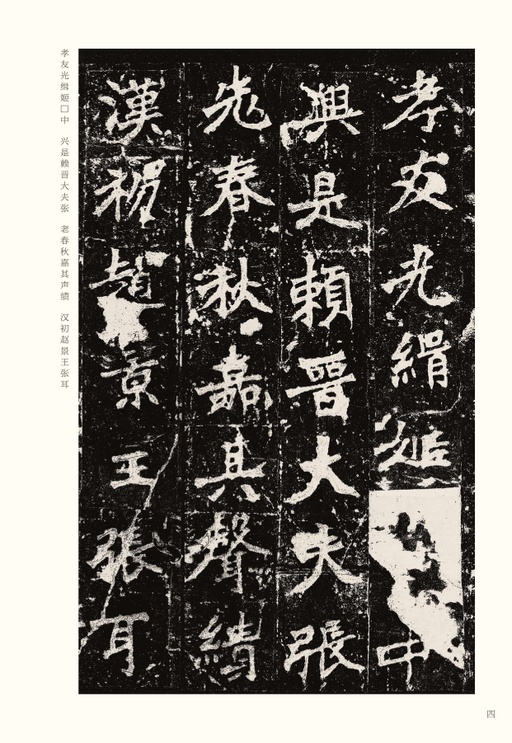 孝友光緝姬中
興是賴晉大夫張
老春秋嘉其聲績
漢初趙景王張耳
孝友光缉姬□中　兴是赖晋大夫张　老春秋嘉其声绩　汉初赵景王张耳
四